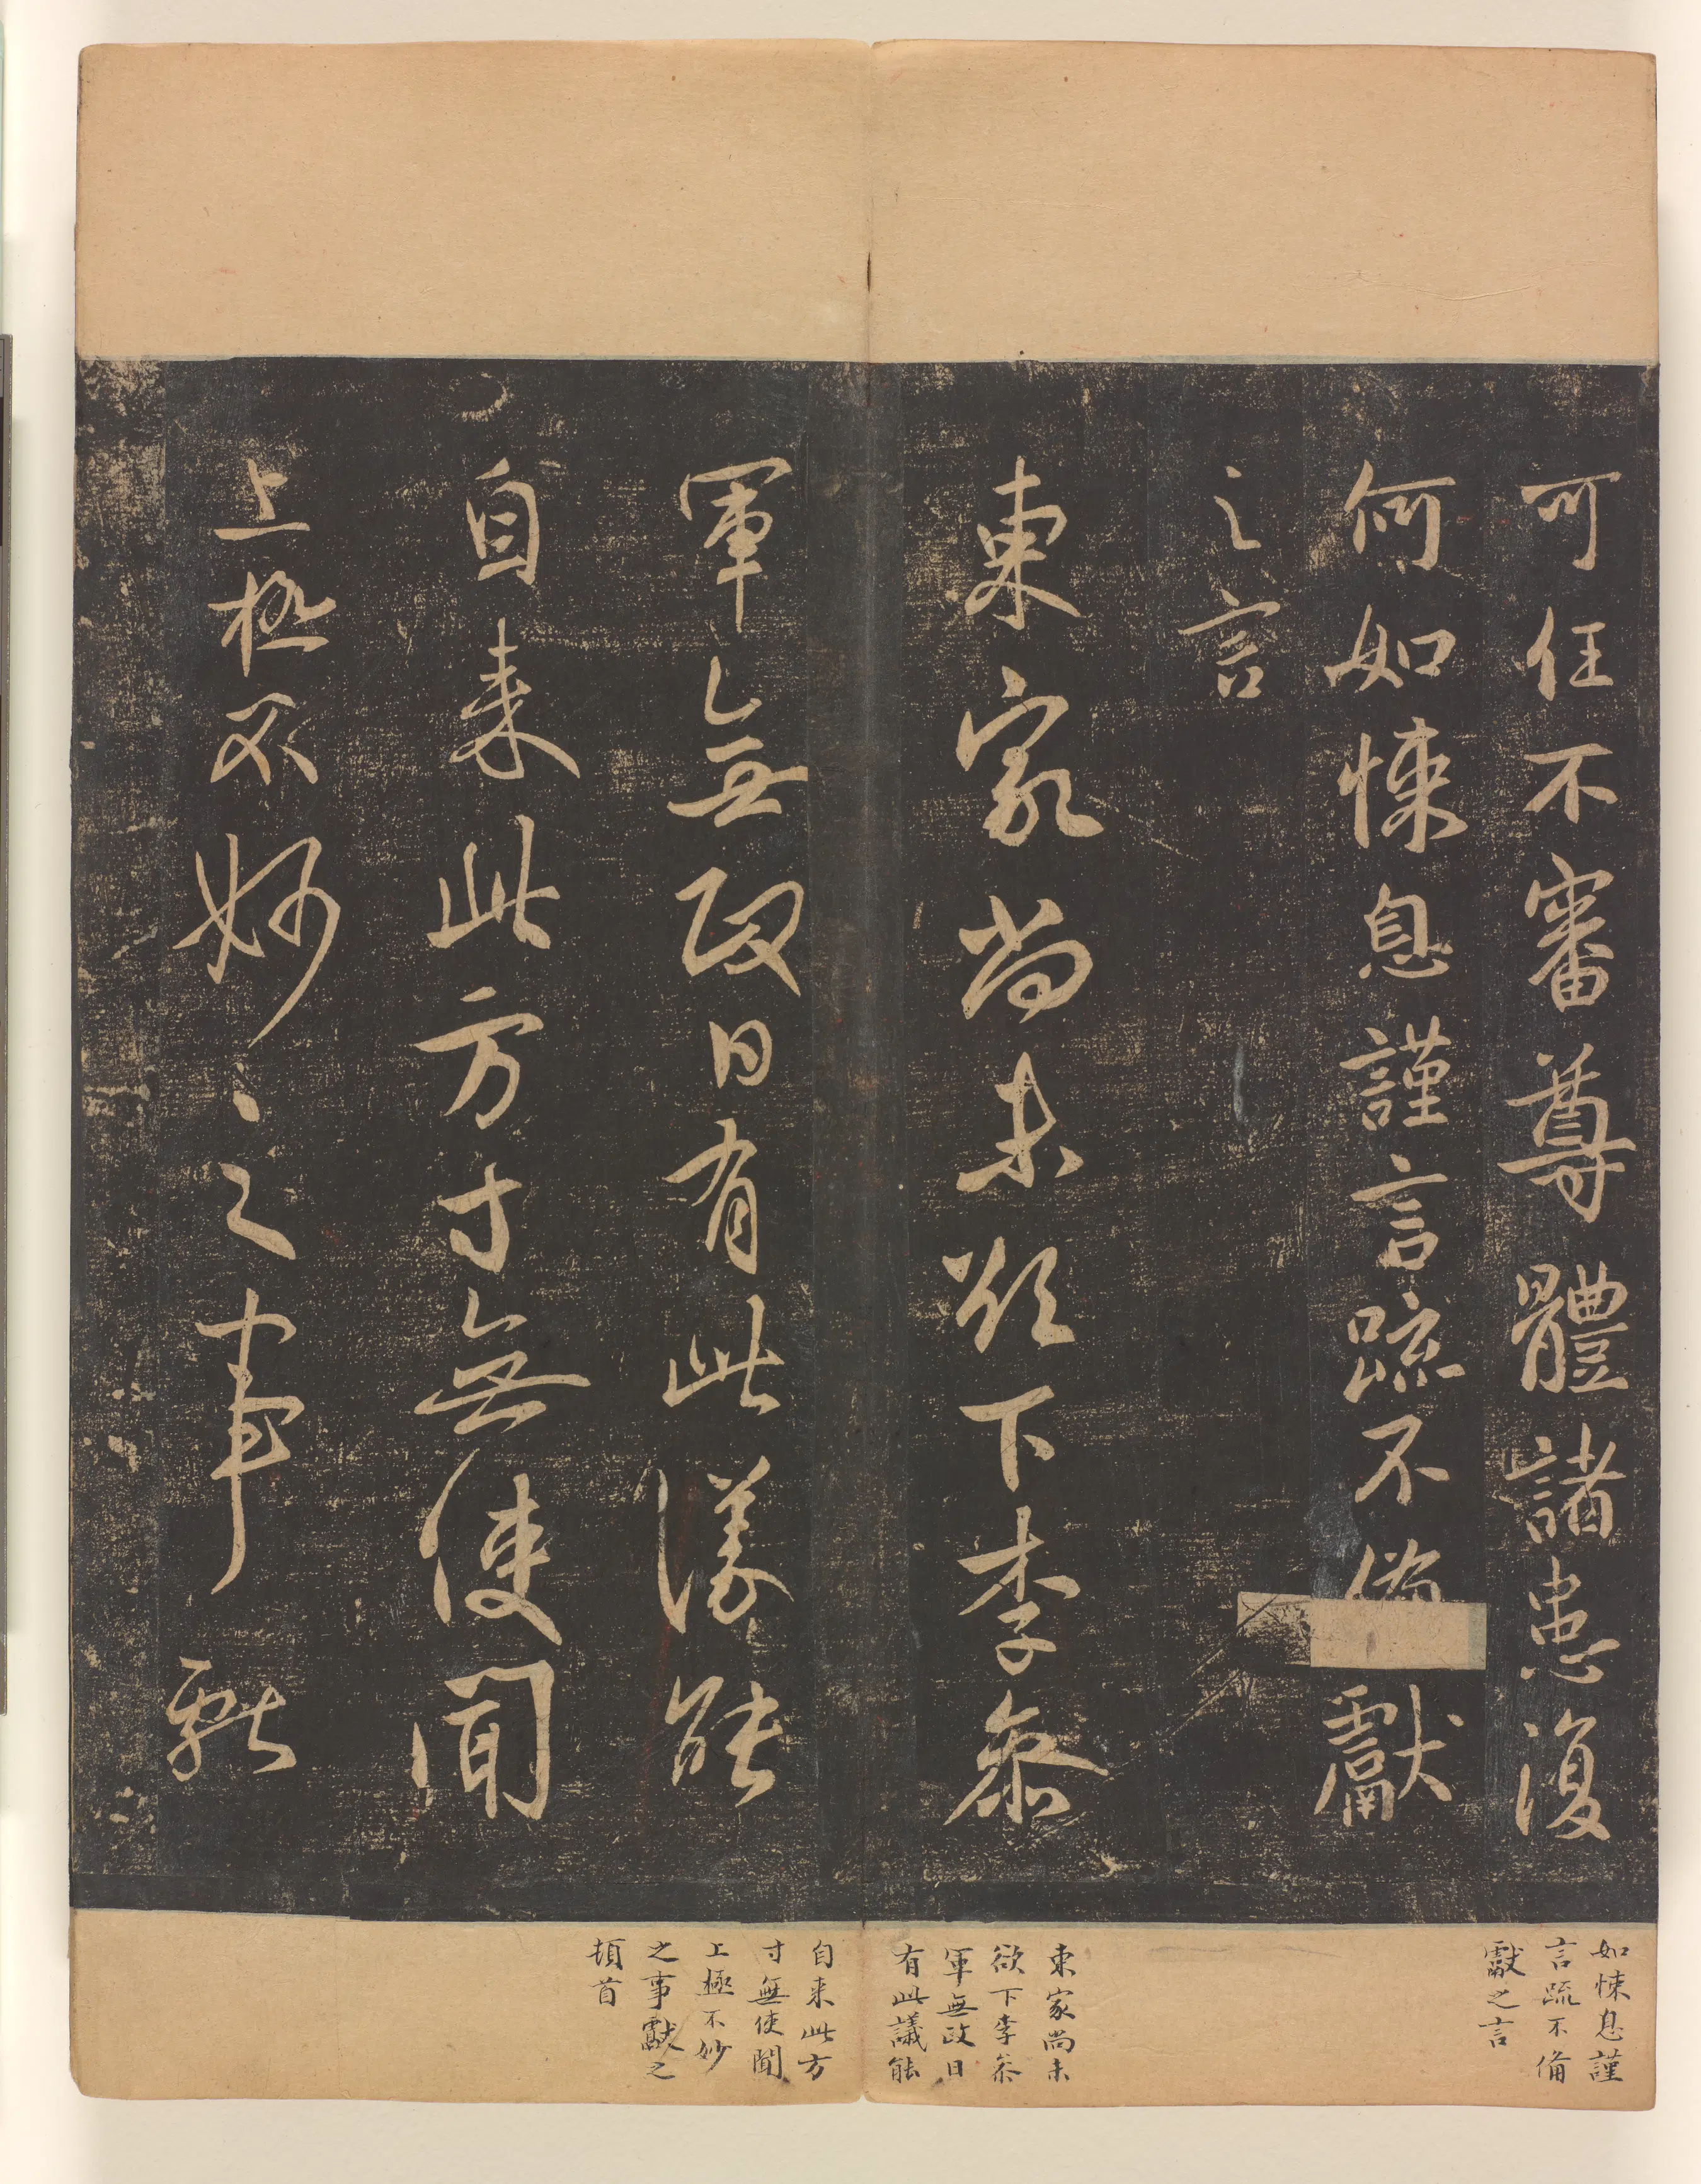 可任不審尊體諸患復
何如悚息謹言疏不備獻
之言
東家尚未欲下李参
軍無政日有此議能
自来此方寸無使聞
上極不妙之事獻
如悚息謹
言疏不備
獻之言
東家尚未
欲下李叅
軍無政日
有此議能
自来此方
寸無使聞
上極不妙
之事獻之
頓首